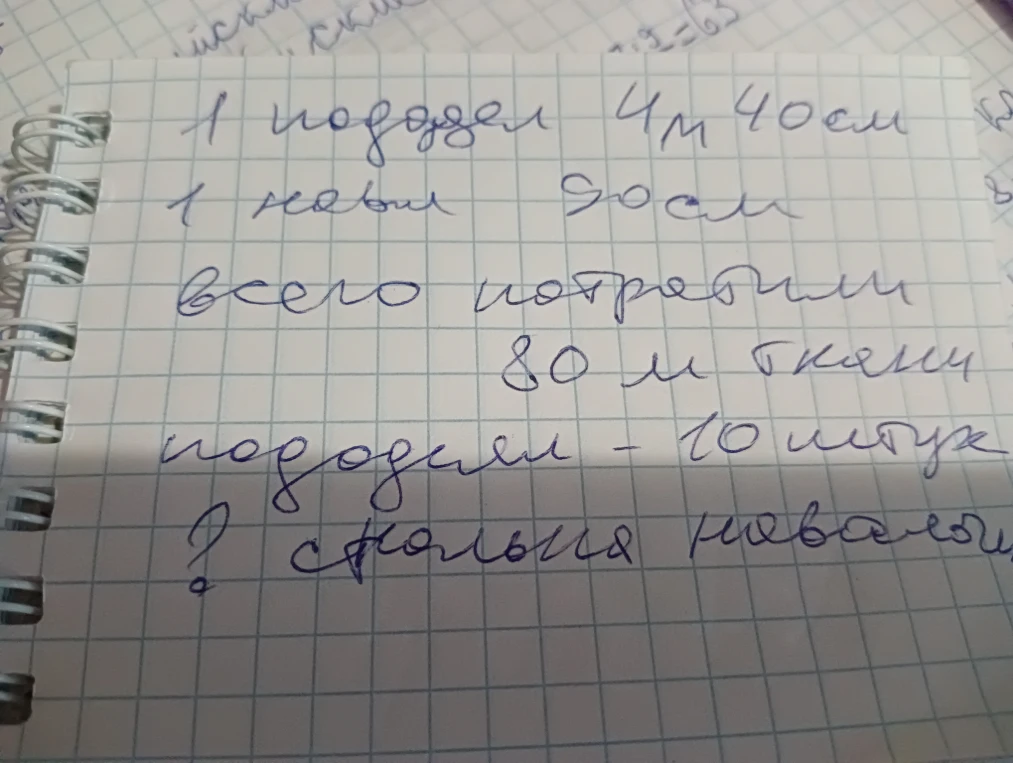 1 пододел 4м 40см
1 навл 90см
всего потратили
80 м ткани
пододеял - 10 штук
? сколька наволоч